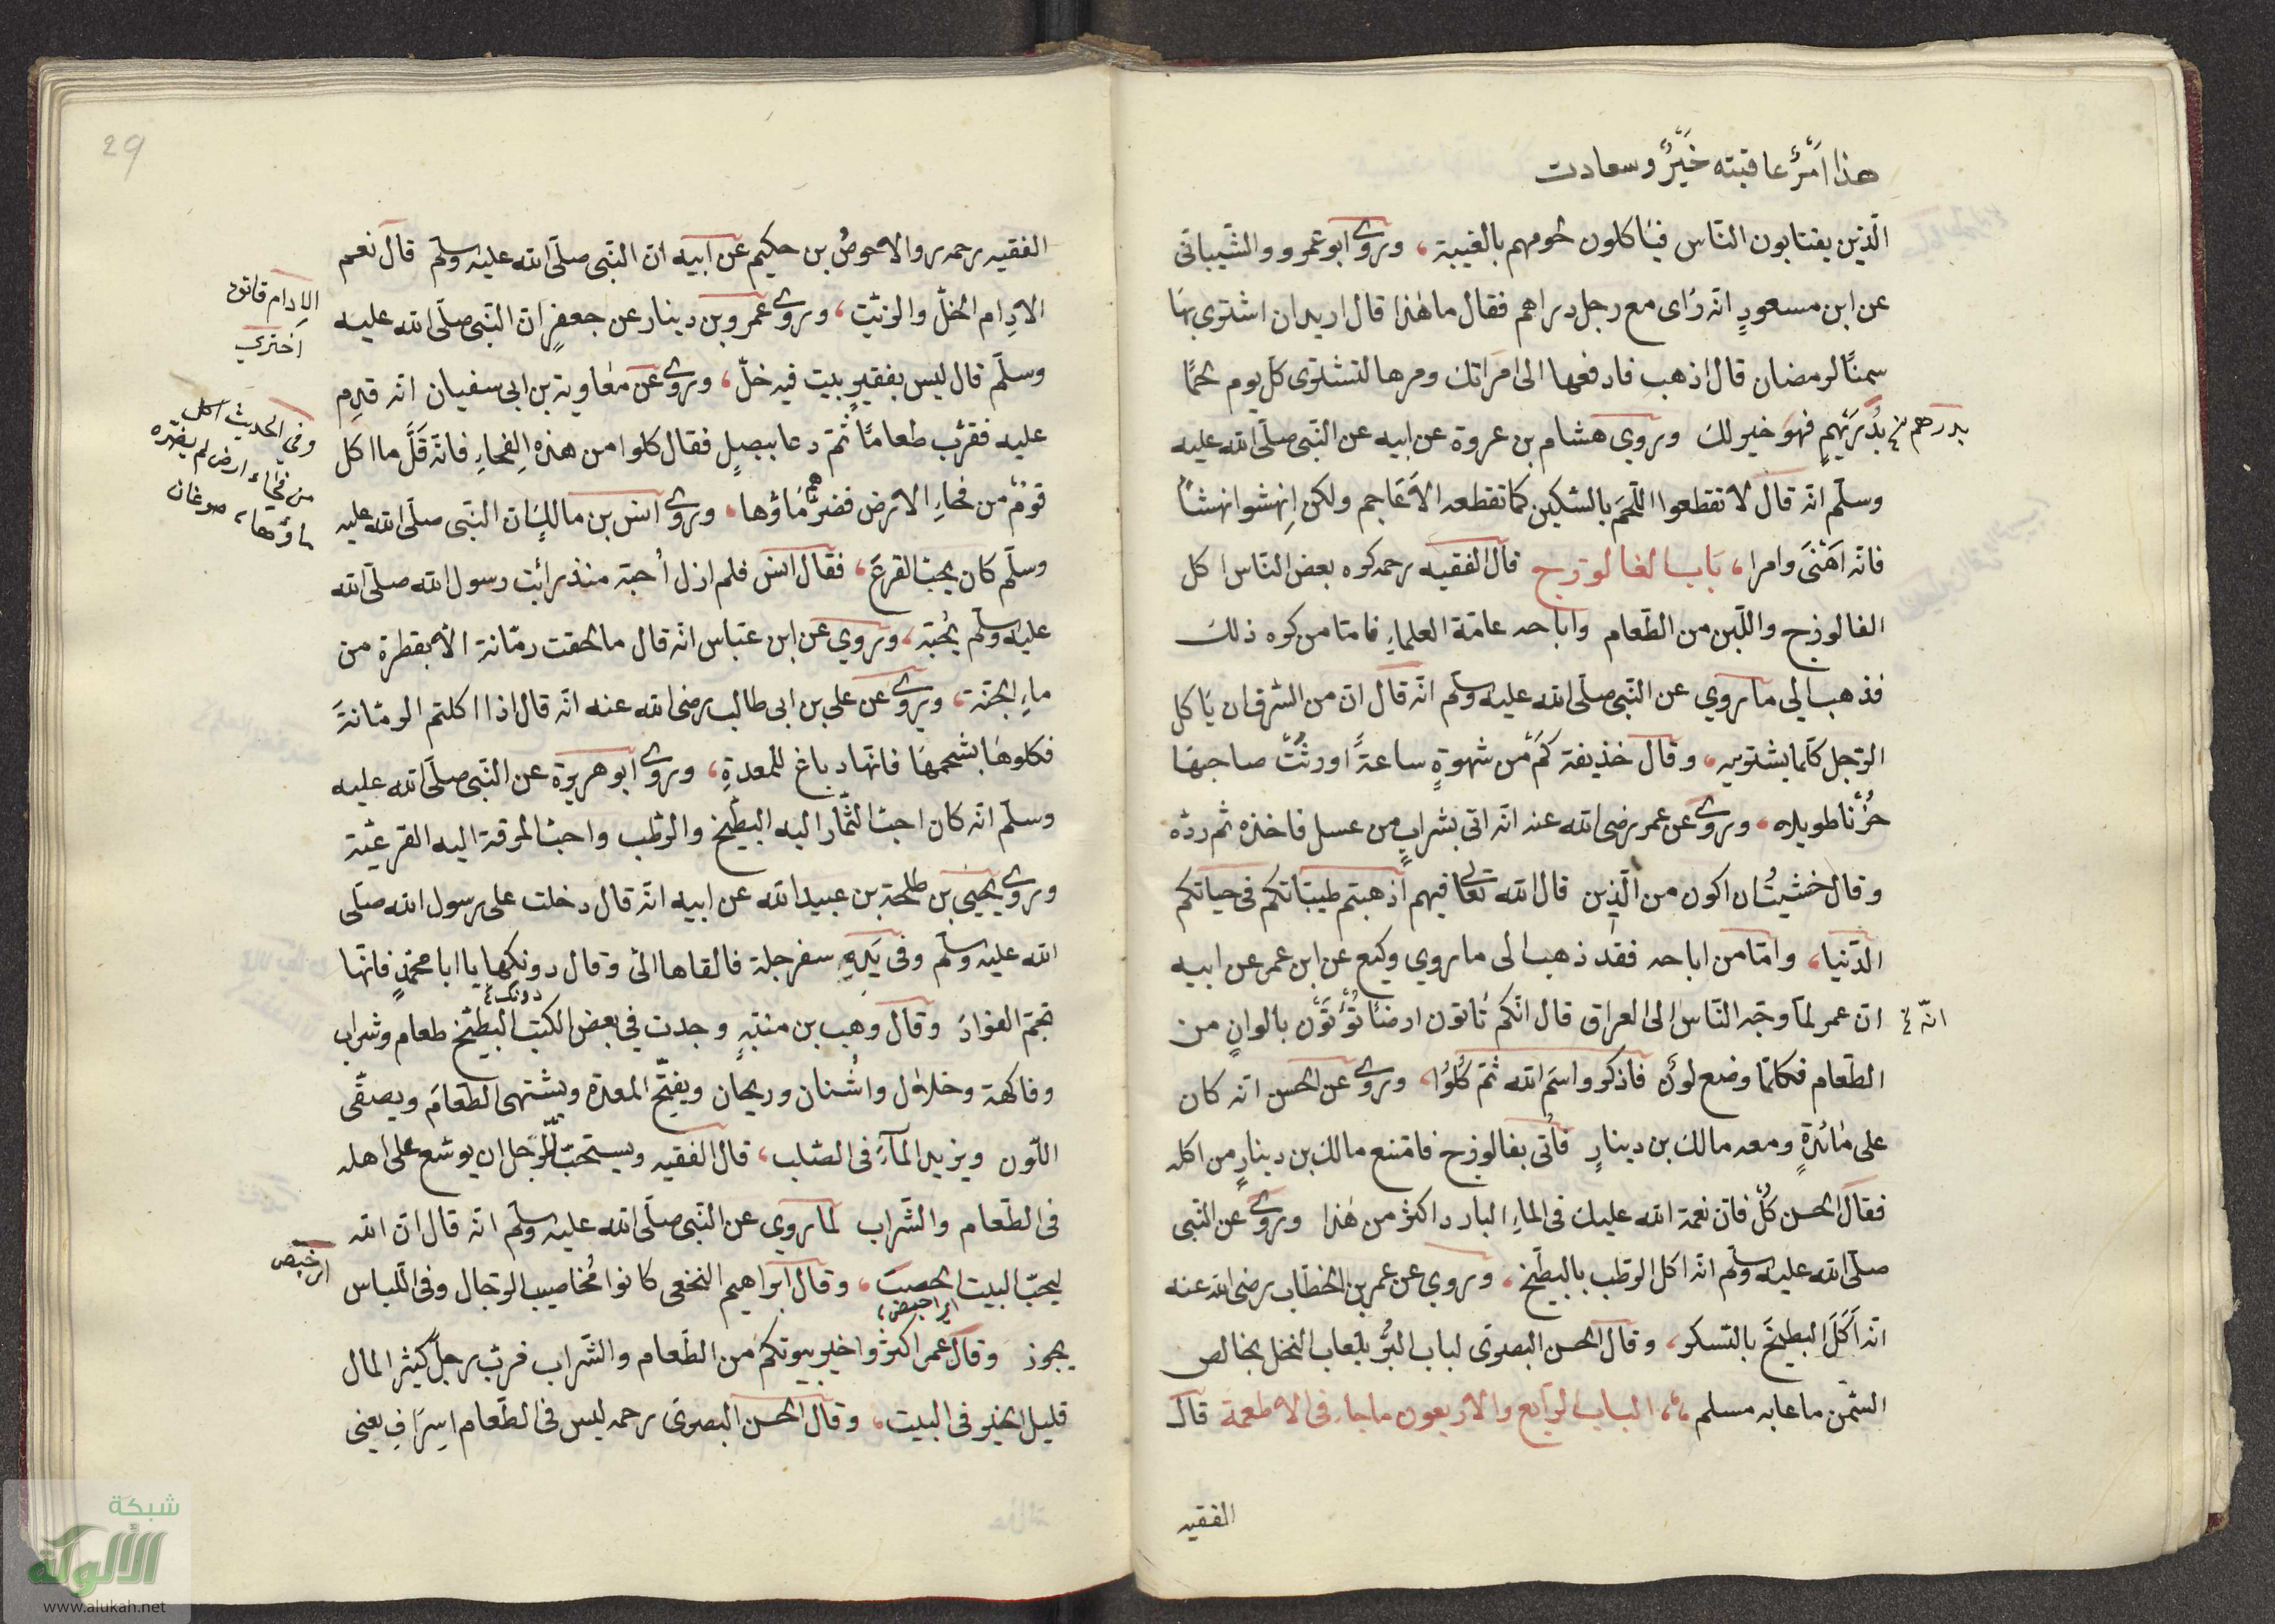 هذا أمْرٌ عاقبته خَيْرٌ وسعادت
الّذين يغتابون النّاس فياكلون لحومهم بالغيبة، وروى ابو عمرو والشّيبانى
عن ابن مسعودٍ انّه رأى مع رجل دراهم فقال ما هٰذا قال اريد ان اشترى بها
سمنًا لرمضان قال اذهب فادفعها الى امرأتك ومرها لتشترى كلّ يوم لحمًا
بدرهم
بدُرَيْهمٍ فهو خير لك وروى هشام بن عروة عن ابيه عن النّبى صلّى الله عليه
وسلّم انّه قال لا تقطعوا اللّحم بالسّكين كما تقطعه الأعاجم ولكن اِنهشوا نهشاً
فانّه اَهْنَى وامرا، باب الفالوزج قال الفقيه رحمه كره بعض النّاس اكل
الفالوزج واللّين من الطّعام واباحه عامّة العلماءِ فامّا من كره ذلك
فذهب الي ما روي عن النّبى صلّى الله عليه وسلّم انّه قال انّ من السّرف ان يَاكل
الرّجل كلّما يشتريه، وقال حذيفة كَمْ من شهوةٍ ساعةً اورثتْ صاحبها
حُزْنا طويلا، وروى عن عمر رضى الله عنه انّه اتى بشرابٍ من عسل فاخذه ثم ردّه
وقال خشيتُ ان اكون من الّذين قال الله تعالى فيهم أذهبتم طيّباتكم فى حياتكم
الدّنيا، وامّا من اباحه فقد ذهب الى ما روي وكيع عن ابن عمر عن ابيه
انّه
انّ عمر لمّا وجّه النّاس الى العراق قال انّكم تأتون ارضًا تُؤْتَوْن بالوانٍ من
الطّعام فكلّما وضع لونٌ فاذكروا اسم الله ثمّ كُلُوْا، وروى عن الحسن انّه كان
على مائدةٍ ومعه مالك بن دينارٍ فأتى بفالوزج فامتنع مالك بن دينارٍ من اكله
فقال الحسن كُلْ فانّ نعمة الله عليك فى الماءِ البارد اكثر من هٰذا وروى عن النّبى
صلّى الله عليه وسلّم انّه اكل الرّطب بالبطّيخ، وروى عن عمر بن الخطّاب رضى الله عنه
انّه اَكَلَ البطّيخَ بالسّكر، وقال الحسن البصرى لباب البُرّ بلعاب النحل بخالص
السّمن ما عابه مسلم، الباب الرّابع والاربعون ما جاء فى الاطعمة قال
الفقيه
29
الفقيه رحمه روا الاحوصُ بن حكيم عن ابيه انّ النّبى صلّى الله عليه وسلّم قال نعم
الادِام الخلّ والزّيت، وروى عمرو بن دينار عن جعفرٍ انّ النّبى صلّى الله عليه
وسلّم قال ليس بفقيرٍ بيت فيه خلّ، وروى عن معاوية بن ابى سفيان انّه قدِم
عليه فقرّب طعامًا ثمّ دعا ببصلٍ فقال كلوا من هذه الفِحاءِ فانّه قَلَّ ما اكل
قومٌ من فحاءِ الارض فضرّهم ماؤها، وروى انس بن مالك انّ النّبى صلّى الله عليه
وسلّم كان يحبّ القرعَ، فقال انس فلم ازل اُحبّه منذ رأيت رسول الله صلّى الله
عليه وسلّم يحُبّه، وروي عن ابن عبّاس انّه قال ما لحقت رمّانة الّا بقطرة من
ماءِ الجنّة، ويروى عن علي بن ابى طالب رضى الله عنه انّه قال اذا اكلتم الرمّانةَ
فكلوها بشحمها فانّها دباغ للمعدةِ، وروى ابو هريرة عن النّبى صلّى الله عليه
وسلّم انّه كان احبّ الثّمار اليه البطّيخ والرّطب واحبّ المرقة اليه القرعيّة
وروى يحيى بن طلحة بن عبيد الله عن ابيه انّه قال دخلت على رسول الله صلّى
الله عليه وسلّم وفى يَدِهِ سفرجلة فالقاها الىّ وقال دونكها يا ابا محمّدٍ فانّها
دونك
تجمّ الفؤاد وقال وهب بن منبّهٍ وجدت في بعض الكتب البطّيخ طعام وشراب
وفاكهة وخلال واُشنان وريحان ويفتّح المعدة ويشتهى الطّعام ويصفّى
اللّون ويزيد المآءَ فى الصّلب، قال الفقيه ويستحبّ للّرجل ان يوسّع على اهله
فى الطّعام والشّراب لما روي عن النّبى صلّى الله عليه وسلّم انّه قال انّ الله
ليحبّ البيت الخصيب، وقال ابراهيم النخعى كانوا مُخاصيب الرّجال وفى اللّباس
يجوز وقال عمر اكثروا خير بيوتكم من الطّعام والشّراب فربّ رجل كثير المال
قليل الخير فى البيت، وقال الحسن البصرى رحمه ليس فى الطّعام اسِرَافِ يعنى
الادام قاتق
وفي الحديث اكل
من فحاء ارض لم يضرّه
ماؤها، صوغان
شبكة
الألوكة
www.alukah.net